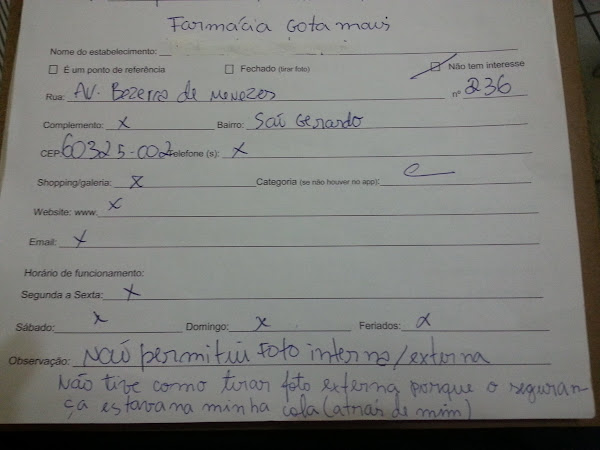 Farmácia Gota mais
Nome do estabelecimento:
É um ponto de referência Fechado (tirar foto) Não tem interesse
Rua: AV. Bezerra de Menezes nº 236
Complemento: x Bairro: Saõ Gerardo
CEP: 60325-002 Telefone (s): x
Shopping/galeria: x Categoria (se não houver no app):
Website: www. x
Email: x
Horário de funcionamento:
Segunda a Sexta: x
Sábado: x Domingo: x Feriados: x
Observação: Naõ permitiu foto interna/externa
Não tive como tirar foto externa porque o seguran-
ça estava na minha cola (atrás de mim)